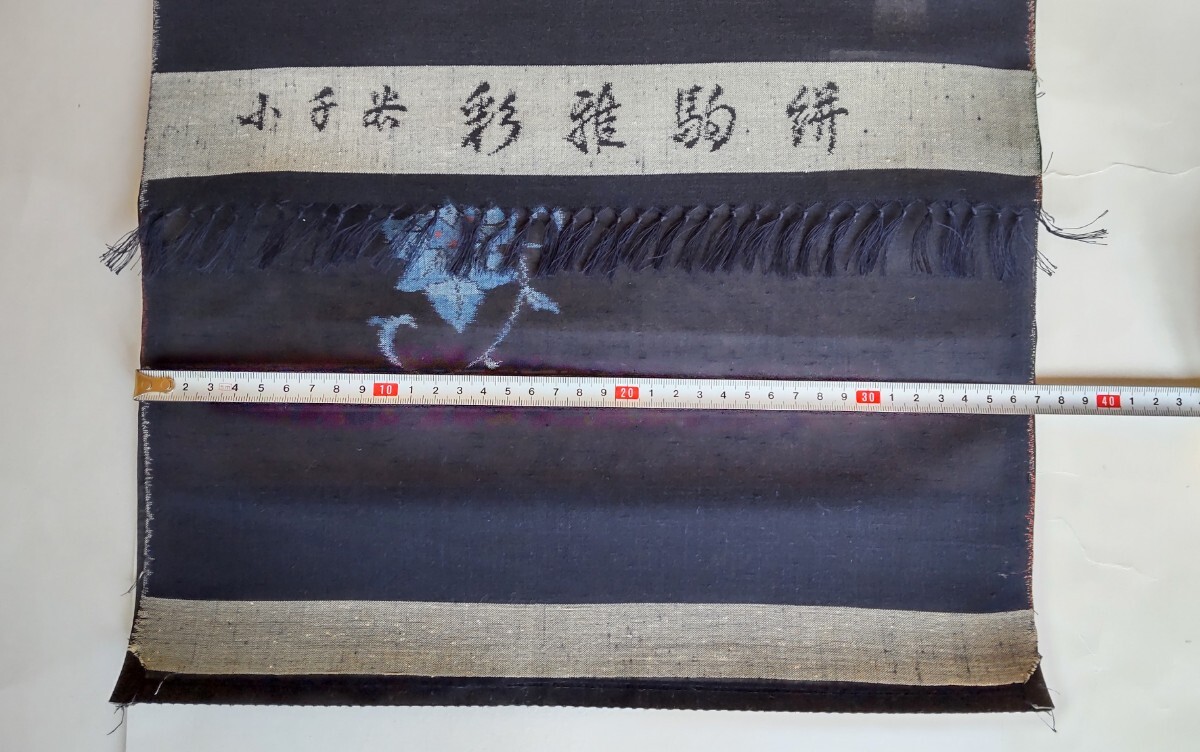 小千谷 彩雅駒絣
2 3 4 5 6 7 8 9 10 1 2 3 4 5 6 7 8 9 20 1 2 3 4 5 6 7 8 9 30 1 2 3 4 5 6 7 8 9 40 1 2 3